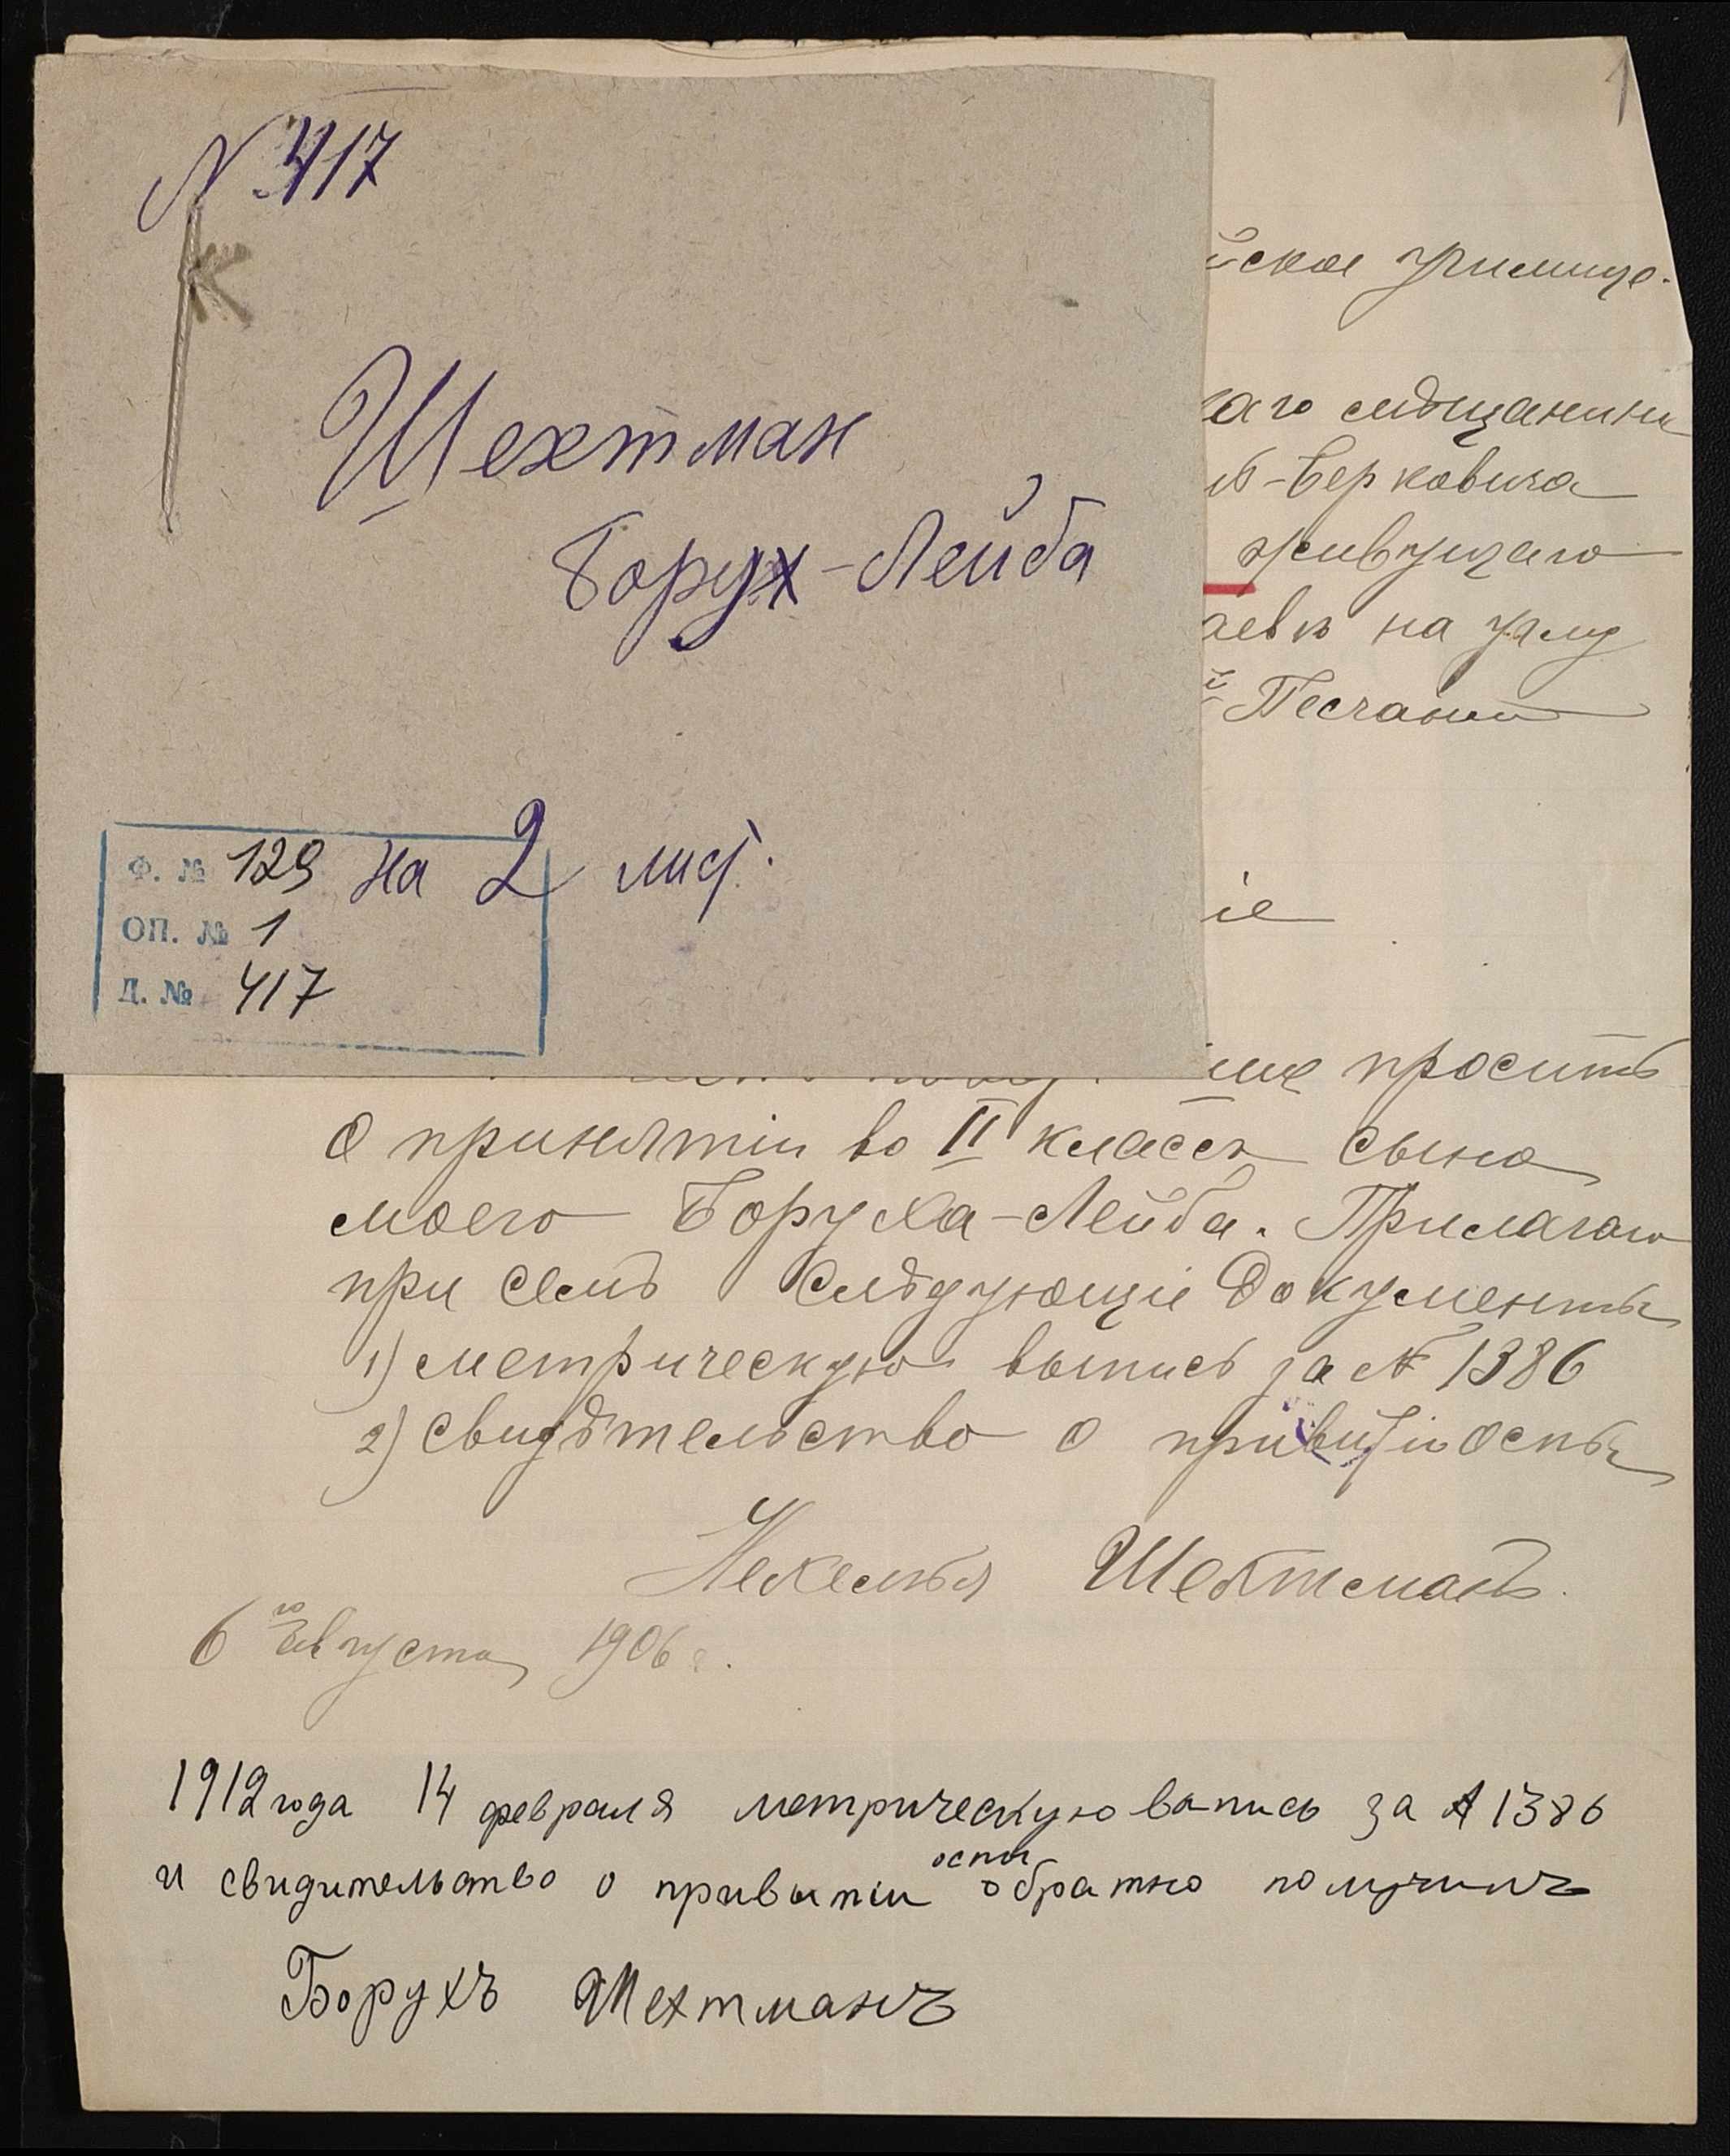 N 417
Шехтман
Борух-Лейба
на 2 лист.
Ф. № 129
ОП. № 1
Д. № 417
1
ское училище.
аго мѣщанина
Берковича
живущаго
на углу
Песчаной
іе
просить
о принятіи во II классъ сына
моего Боруха-Лейба. Прилагаю
при семъ слѣдующіе документы
1) метрическую выпись за № 1386
2) свидѣтельство о привитіи оспы
Шехтманъ.
6го Августа 1906 г.
1912 года 14 февраля метрическую вапись за № 1386
и свидительство о привытіи оспы обратно получилъ
Борухъ Шехтманъ